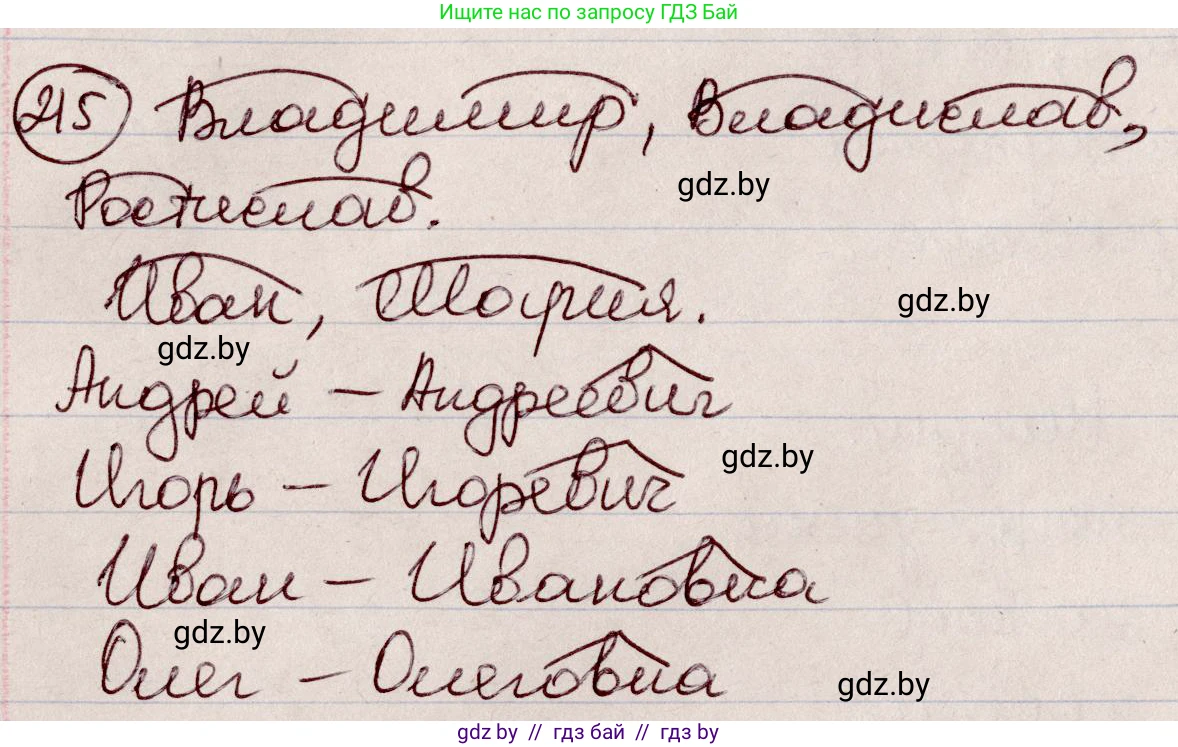 Ищите нас по запросу ГДЗ Бай
215 Владимир, Владислав,
gdz.by
Ростислав.
Иван, Мария.
gdz.by
gdz.by
Андрей – Андреевич
gdz.by
Игорь – Игоревич
Иван – Ивановна
gdz.by
Олег – Олеговна
gdz.by
gdz.by // гдз бай // гдз by